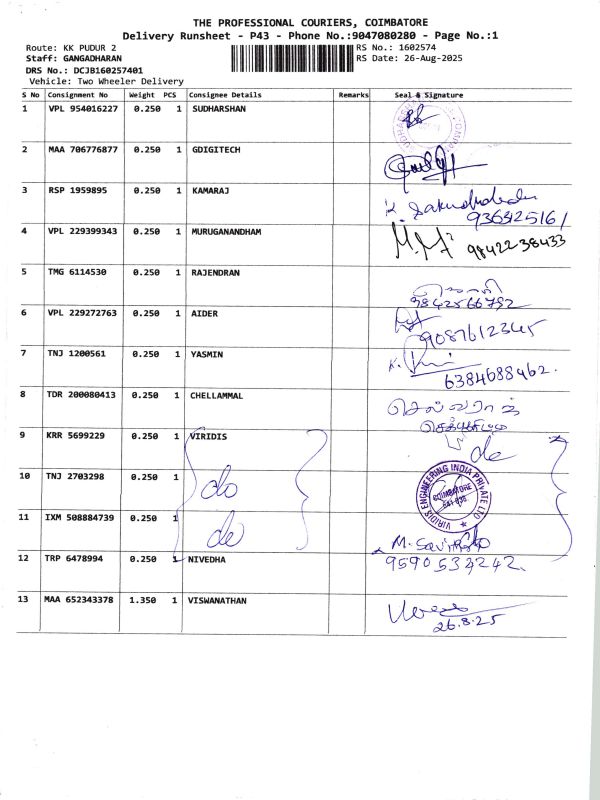 THE PROFESSIONAL COURIERS, COIMBATORE
Delivery Runsheet - P43 - Phone No.:9047080280 - Page No.:1
Route: KK PUDUR 2 RS No.: 1602574
Staff: GANGADHARAN RS Date: 26-Aug-2025
DRS No.: DCJB160257401
Vehicle: Two Wheeler Delivery
S No Consignment No Weight PCS Consignee Details Remarks Seal & Signature
1 VPL 954016227 0.250 1 SUDHARSHAN
2 MAA 706776877 0.250 1 GDIGITECH
3 RSP 1959895 0.250 1 KAMARAJ
4 VPL 229399343 0.250 1 MURUGANANDHAM
9842238433
5 TMG 6114530 0.250 1 RAJENDRAN
9842566792
6 VPL 229272763 0.250 1 AIDER
9087612345
7 TNJ 1200561 0.250 1 YASMIN
6384688462.
8 TDR 200080413 0.250 1 CHELLAMMAL
செல்வராஜ்
9 KRR 5699229 0.250 1 VIRIDIS
do
10 TNJ 2703298 0.250 1 do
VIRIDIS ENGINEERING INDIA PRIVATE LTD
COIMBATORE
11 IXM 508884739 0.250 1 do
12 TRP 6478994 0.250 1 NIVEDHA
9590534242.
13 MAA 652343378 1.350 1 VISWANATHAN
26.8.25